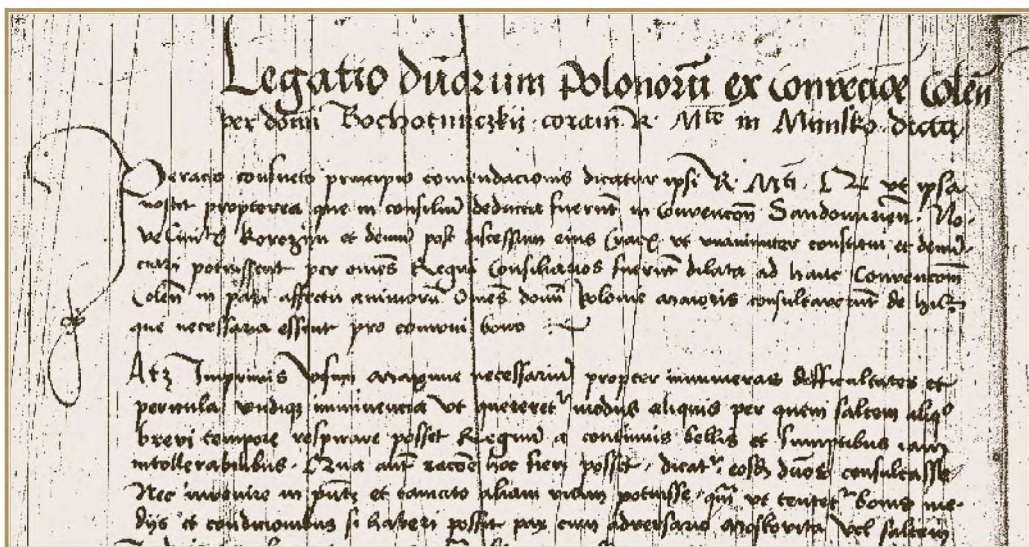 Legatio dnorum Polonorū ex convencioe Colen̄
per dominū Bochotniczkij coram R. Mte in Minsko dicta
Peracto consueto principio comendacionis dicatur ipsi R. Mti. ut ipsa
novit propterea que in consiliū deducta fuerūt in Convencōn Sandomirien. No-
ve et Korczijn et demū post discessum eius ut unanimiter constitui et
potuissent per omēs Regni Consiliarios fuerūt dilata ad hanc Convencōm
Colen̄ in pari affectu animorū Omēs domī Polonie maioris consultaverūt de
que necessaria essent pro comuni bono
Atq Imprimis visum maxime necessariū propter innumeras difficultates et
pericula undiqz imminencia ut quereretr modus aliquis per quem saltem aliqo
brevi tempore respirare posset Regnū a continuis bellis et sumptibus iam
intollerabilibus. Qua aut racōe hoc fieri posset. dicatr eosdē dnos consultasse
Nec invenire in et tam cito aliam viam potuisse. qm̄ ut tentetr bonis me-
dijs et condicionibus si haberi posset pax cum adversario Moskovita vel saltem